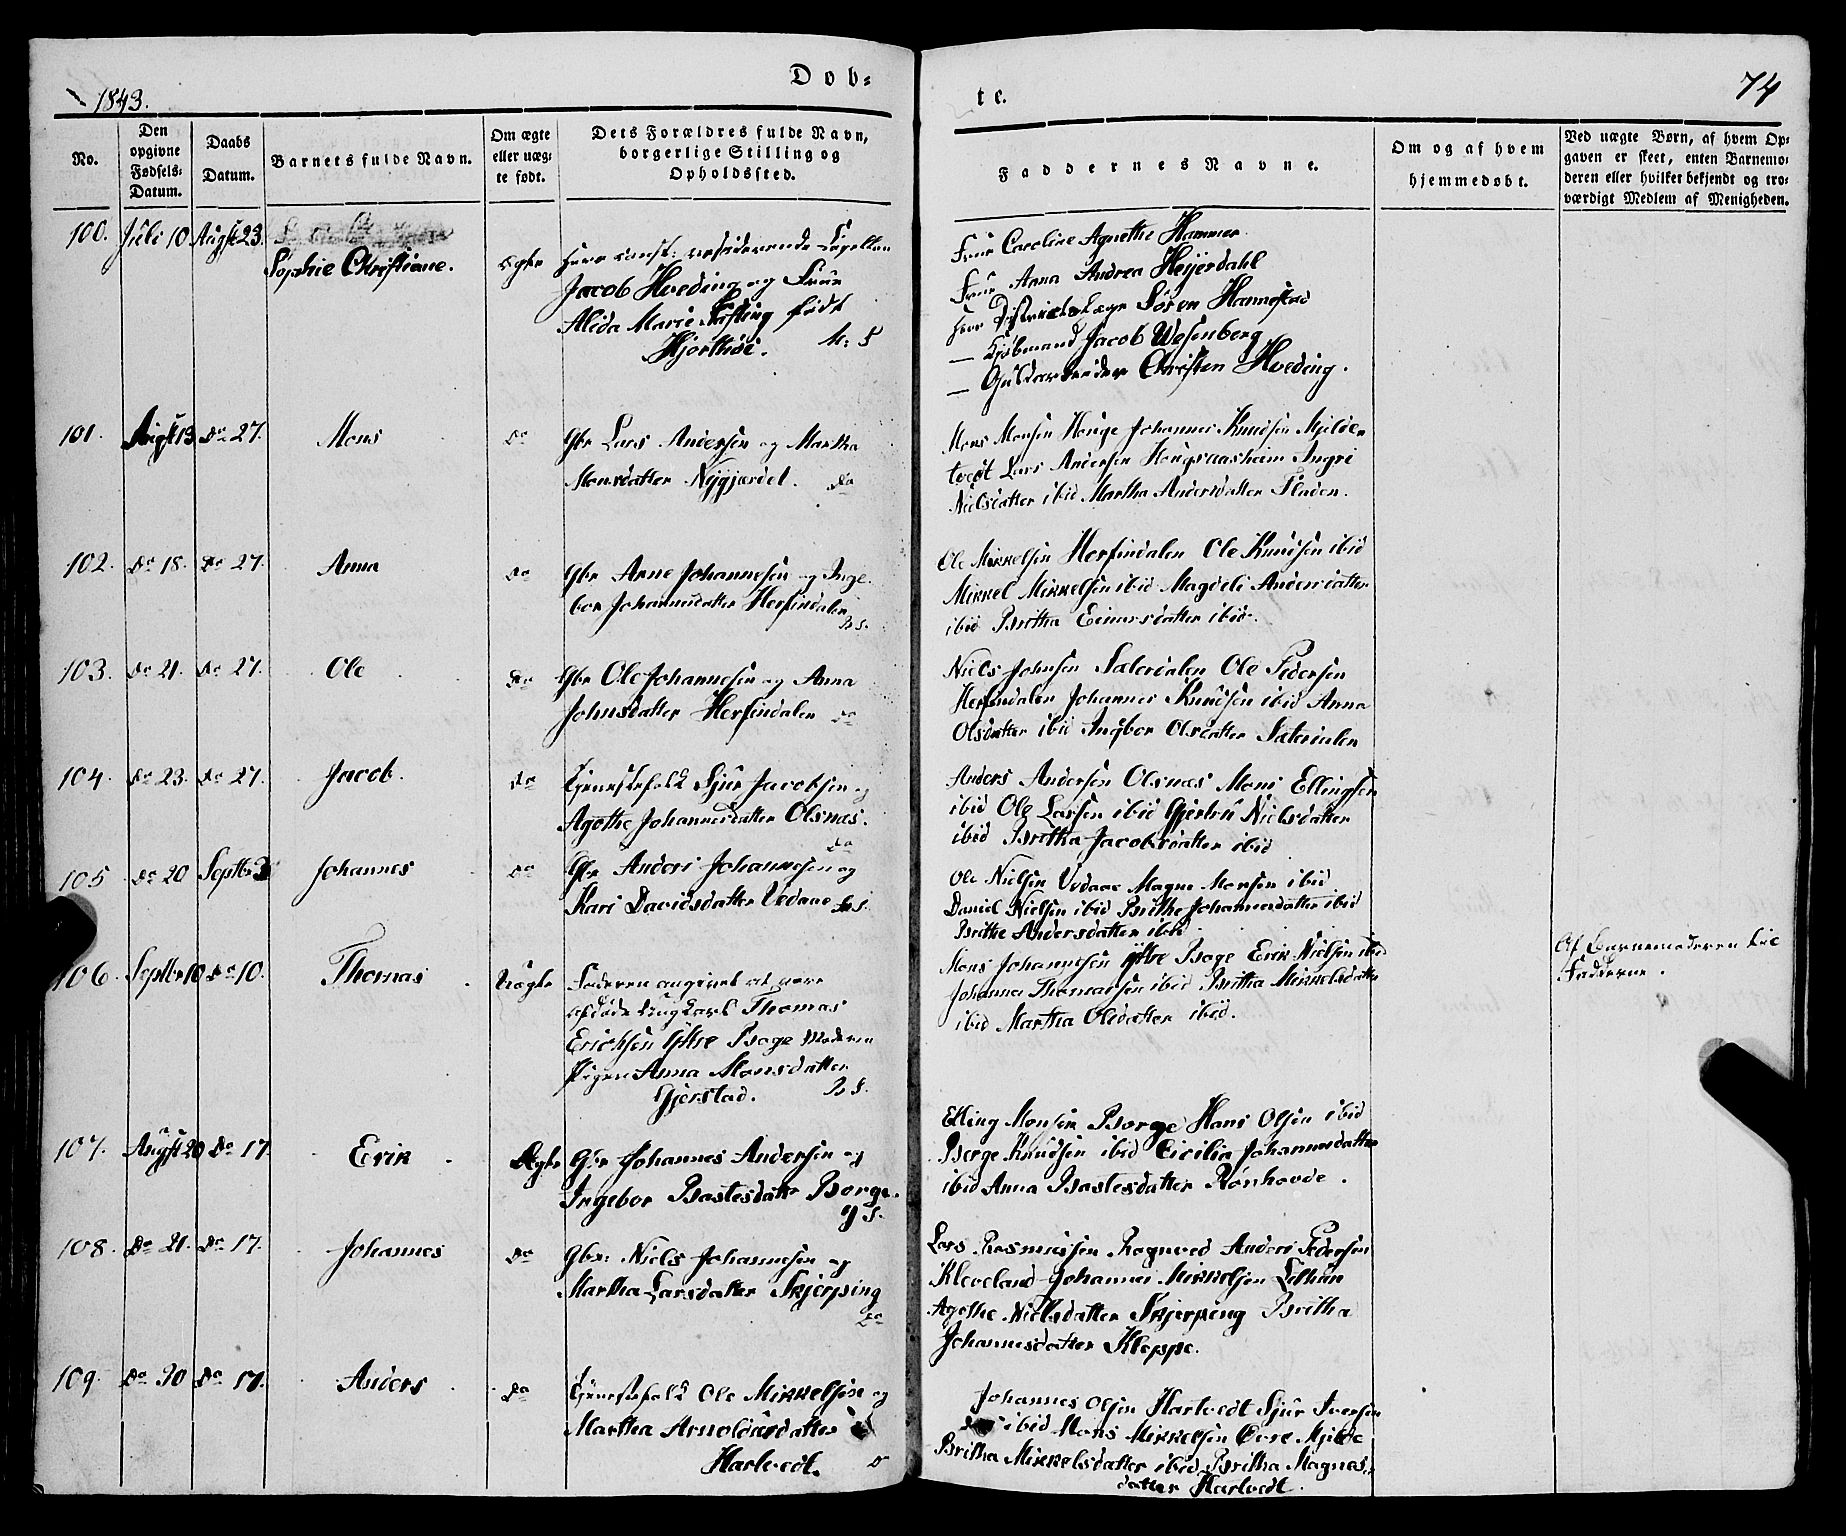 1843.
Døb-
te.
74
No.
Den
opgivne
Fødsels-
Datum.
Daabs
Datum.
Barnets fulde Navn.
Om ægte
eller uæg-
te født.
Dets Forældres fulde Navn,
borgerlige Stilling og
Opholdssted.
Faddernes Navne.
Om og af hvem
hjemmedøbt.
Ved uægte Børn, af hvem Op-
gaven er skeet, enten Barnemo-
deren eller hvilket bekjendt og tro-
værdigt Medlem af Menigheden.
100. Juli 10 Augst 23.
Sophie Christiane.
ægte
Herr const: residerende Capellan
Jacob Hveding og Frue
Alida Marie født
Hjorthøi.
Frue Caroline Agnethe Hammer
Frue Anna Andrea Heyerdahl
Herr Districts Læge Søren Hannestad
— Kjøbmand Jacob Wesenberg
— Guldarbeider Christen Hveding.
101. Augst 13 Do 27.
Mons
Do
Gbr Lars Andersen og Martha
Monsdatter Nygjærdet. Do
Mons Monsen Houge Johannes Knudsen Mjelde
tvedt Lars Andersen Haugsnæsheim Ingri
Nielsdatter ibid Martha Andersdatter Fladen.
102. Do 18. Do 27.
Anna
Do
Gbr Arne Johannesen og Inge-
bor Johannesdatter Herfindalen
Ole Mikkelsen Herfindalen Ole Knudsen ibid
Mikkel Mikkelsen ibid Magdeli Andersdatter
ibid Britha Einersdatter ibid.
103. Do 21. Do 27.
Ole
Do
Gbr Ole Johannesen og Anna
Johnsdatter Herfindalen Do
Niels Johnsen Sæterdalen Ole Pedersen
Herfindalen Johannes Knudsen ibid Anna
Olsdatter ibid Ingbor Olsdatter Sæterdalen
104. Do 23. Do 27.
Jacob.
Do
Tjenestefolk Sjur Jacobsen og
Agothe Johannesdatter Olsnæs.
Do
Anders Andersen Olsnæs Mons Ellingsen
ibid Ole Larsen ibid Gjertru Nielsdatter
ibid Britha Jacobsdatter ibid
105 Do 20 Septbr 3
Johannes
Do
Gbr Anders Johannesen og
Kari Davidsdatter Vedaae
Ole Nielsen Vedaae Magne Monsen ibid
Daniel Nielsen ibid Brithe Johannesdatter ibid
Brithe Andersdatter ibid
106. Septbr 10 Do 10.
Thomas
Uægte
Faderen angivet at være
afdøde Ungkarl Thomas
Erichsen Ytre Boge Moderen
Pigen Anna Monsdatter
Gjerstad.
Mons Johannesen Ytre Boge Erik Nielsen ibid
Johannes Thomassen ibid Britha Mikkelsdatter
ibid Martha Olsdatter ibid.
Af Barnemoderen til
Fadderne.
107. Augst 20 Do 17
Erik
Ægte
Gbr Johannes Andersen og
Ingebor Bastesdatter Borge.
Elling Monsen Borge Hans Olsen ibid
Børge Knudsen ibid Cicilia Johannesdatter
ibid Anna Bastesdatter Rønhovde.
108. Do 21. Do 17.
Johannes
Do
Gbr: Niels Johannesen og
Martha Larsdatter Skjerping
Do
Lars Rasmussen Ragnved Anders Pedersen
Kleveland Johannes Mikkelsen Lethun
Agothe Nielsdatter Skjerping Britha
Johannesdatter Kleppe.
109. Do 30 Do 17.
Anders
Do
Tjenestefolk Ole Mikkelsen og
Martha Arnoldusdatter
Hartvedt.
Johannes Olsen Hartvedt Sjur Iversen
ibid Mons Mikkelsen Øvre Mjelde
Britha Mikkelsdatter ibid Britha Magnes-
datter Hartvedt.